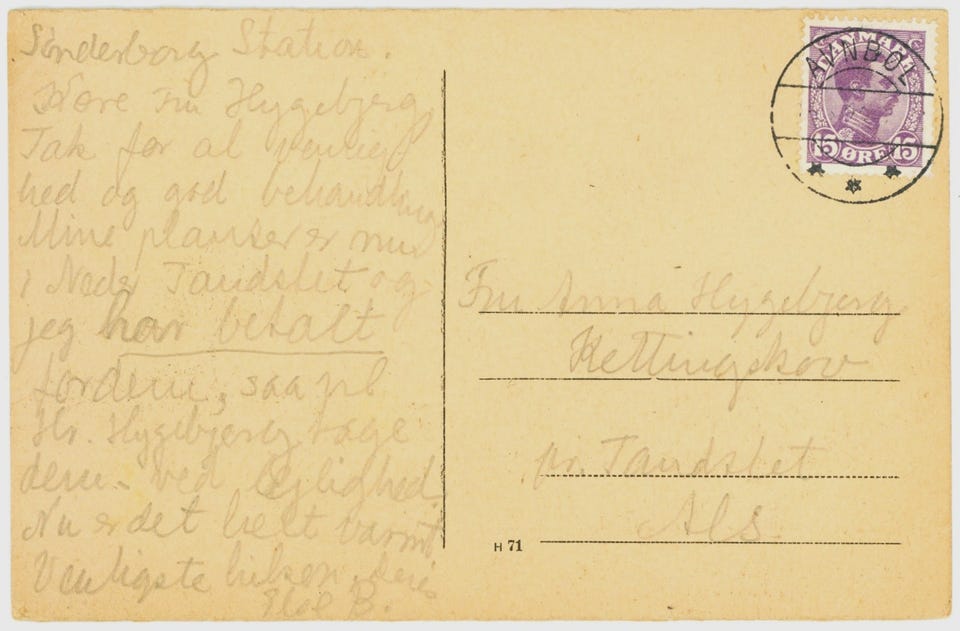 Sønderborg Station.
Kære Fru Hygebjerg
Tak for al venlig
hed og god behandling
Mine planser er nu
i Neder Tandslet og
jeg har betalt
for dem, saa vil
Hr. Hygebjerg tage
dem ved lejlighed
Nu er det helt varmt
Venligste hilsen, deres
B.
DANMARK
15 ØRE 15
AVNBØL
Fru Anna Hygebjerg
Kettingskov
pr. Tandslet
Als
H 71